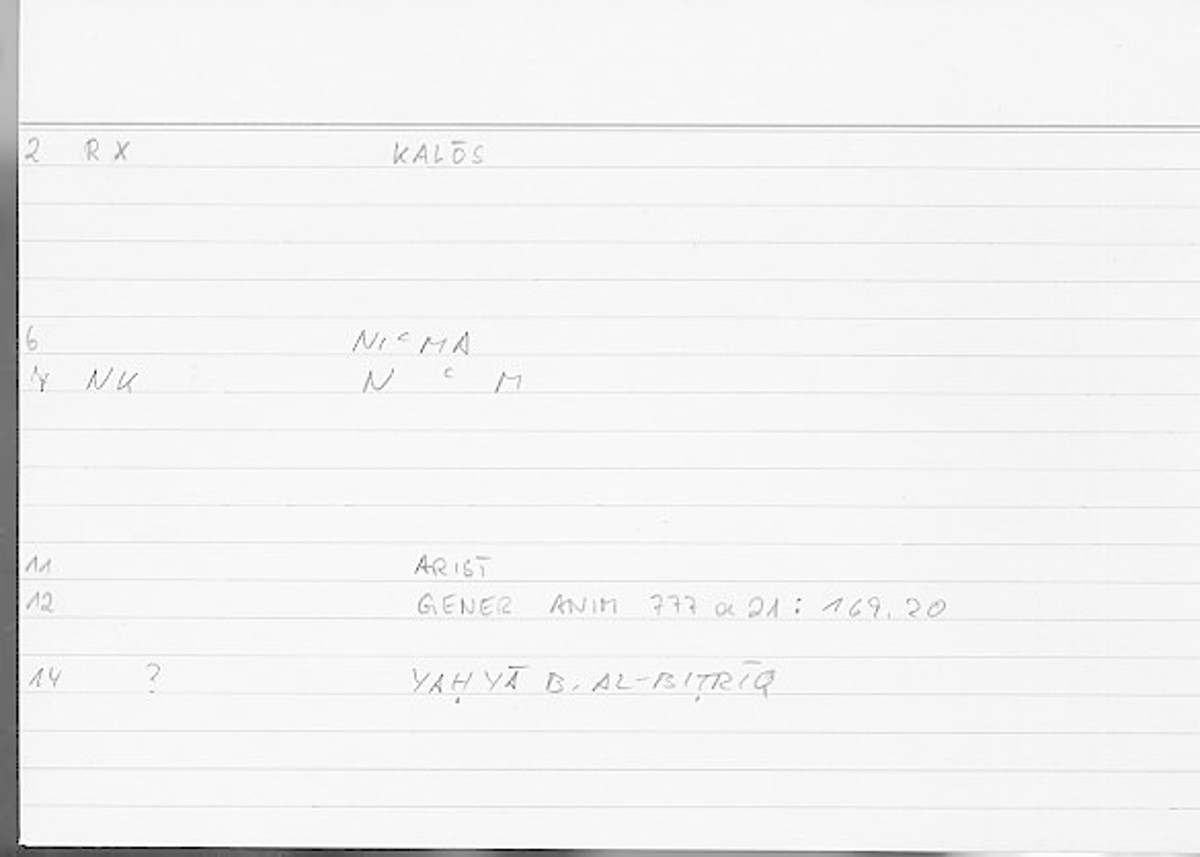 2 R X KALŌS
6 NIᶜMA
7 NK N ᶜ M
11 ARIST
12 GENER ANIM 777 a 21 : 169.20
14 ? YAḤYĀ B. AL-BIṬRĪQ